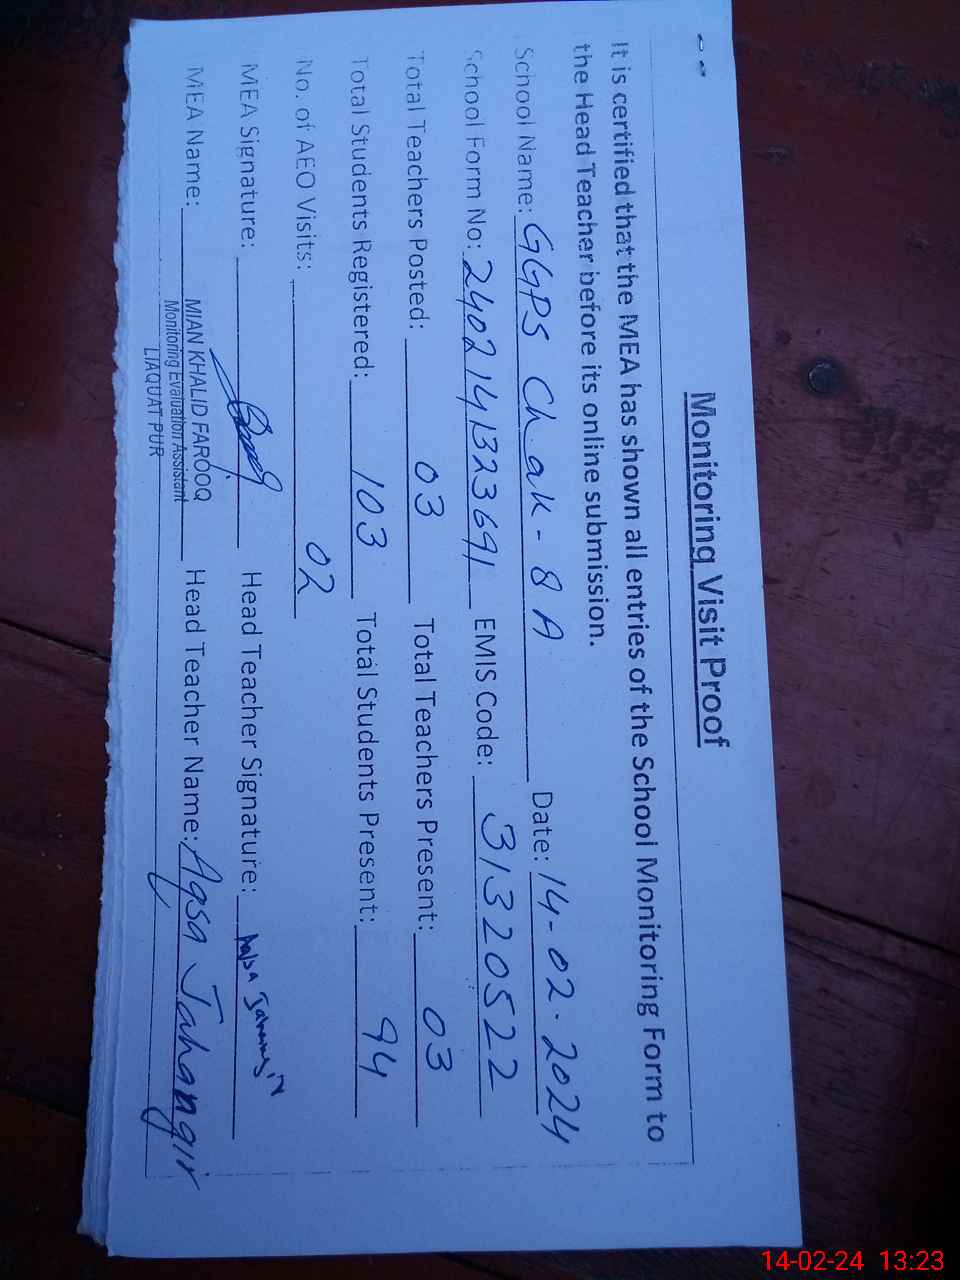 Monitoring Visit Proof
It is certified that the MEA has shown all entries of the School Monitoring Form to
the Head Teacher before its online submission.
School Name: GGPS Chak - 8 A Date: 14-02-2024
School Form No: 2402141323691 EMIS Code: 31320522
Total Teachers Posted: 03 Total Teachers Present: 03
Total Students Registered: 103 Total Students Present: 94
No. of AEO Visits: 02
MEA Signature: Head Teacher Signature:
MEA Name: MIAN KHALID FAROOQ Head Teacher Name: Aqsa Jahangir
Monitoring Evaluation Assistant
LIAQUAT PUR
14-02-24 13:23